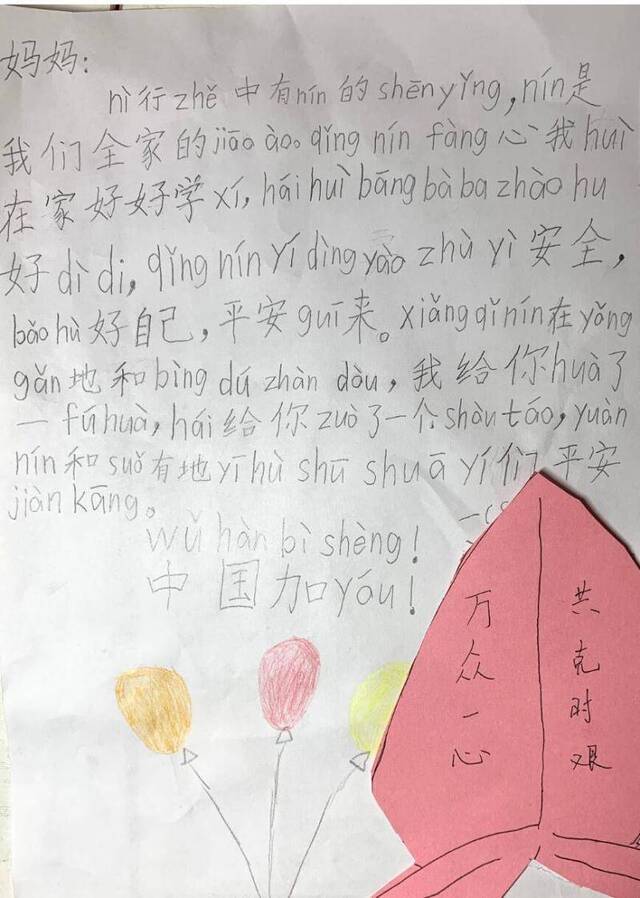 妈妈:
nì行zhě中有nín的shēnyǐng,nín是
我们全家的jiāo ào。qǐng nín fàng心我huì
在家好好学xí,hái huì bāng bà ba zhào hu
好dì di,qǐng nín yí dìng yào zhù yì安全,
bǎo hù好自己,平安guī来。xiǎng qǐ nín在yǒng
gǎn地和bìng dú zhàn dòu,我给你huà了
一fú huà,hái给你zuò了一个shòu táo,yuàn
nín和suǒ有地yī hù shū shuā yí们平安
jiàn kāng。
wǔ hàn bì shèng!
中国加yóu!
万众一心
共克时艰